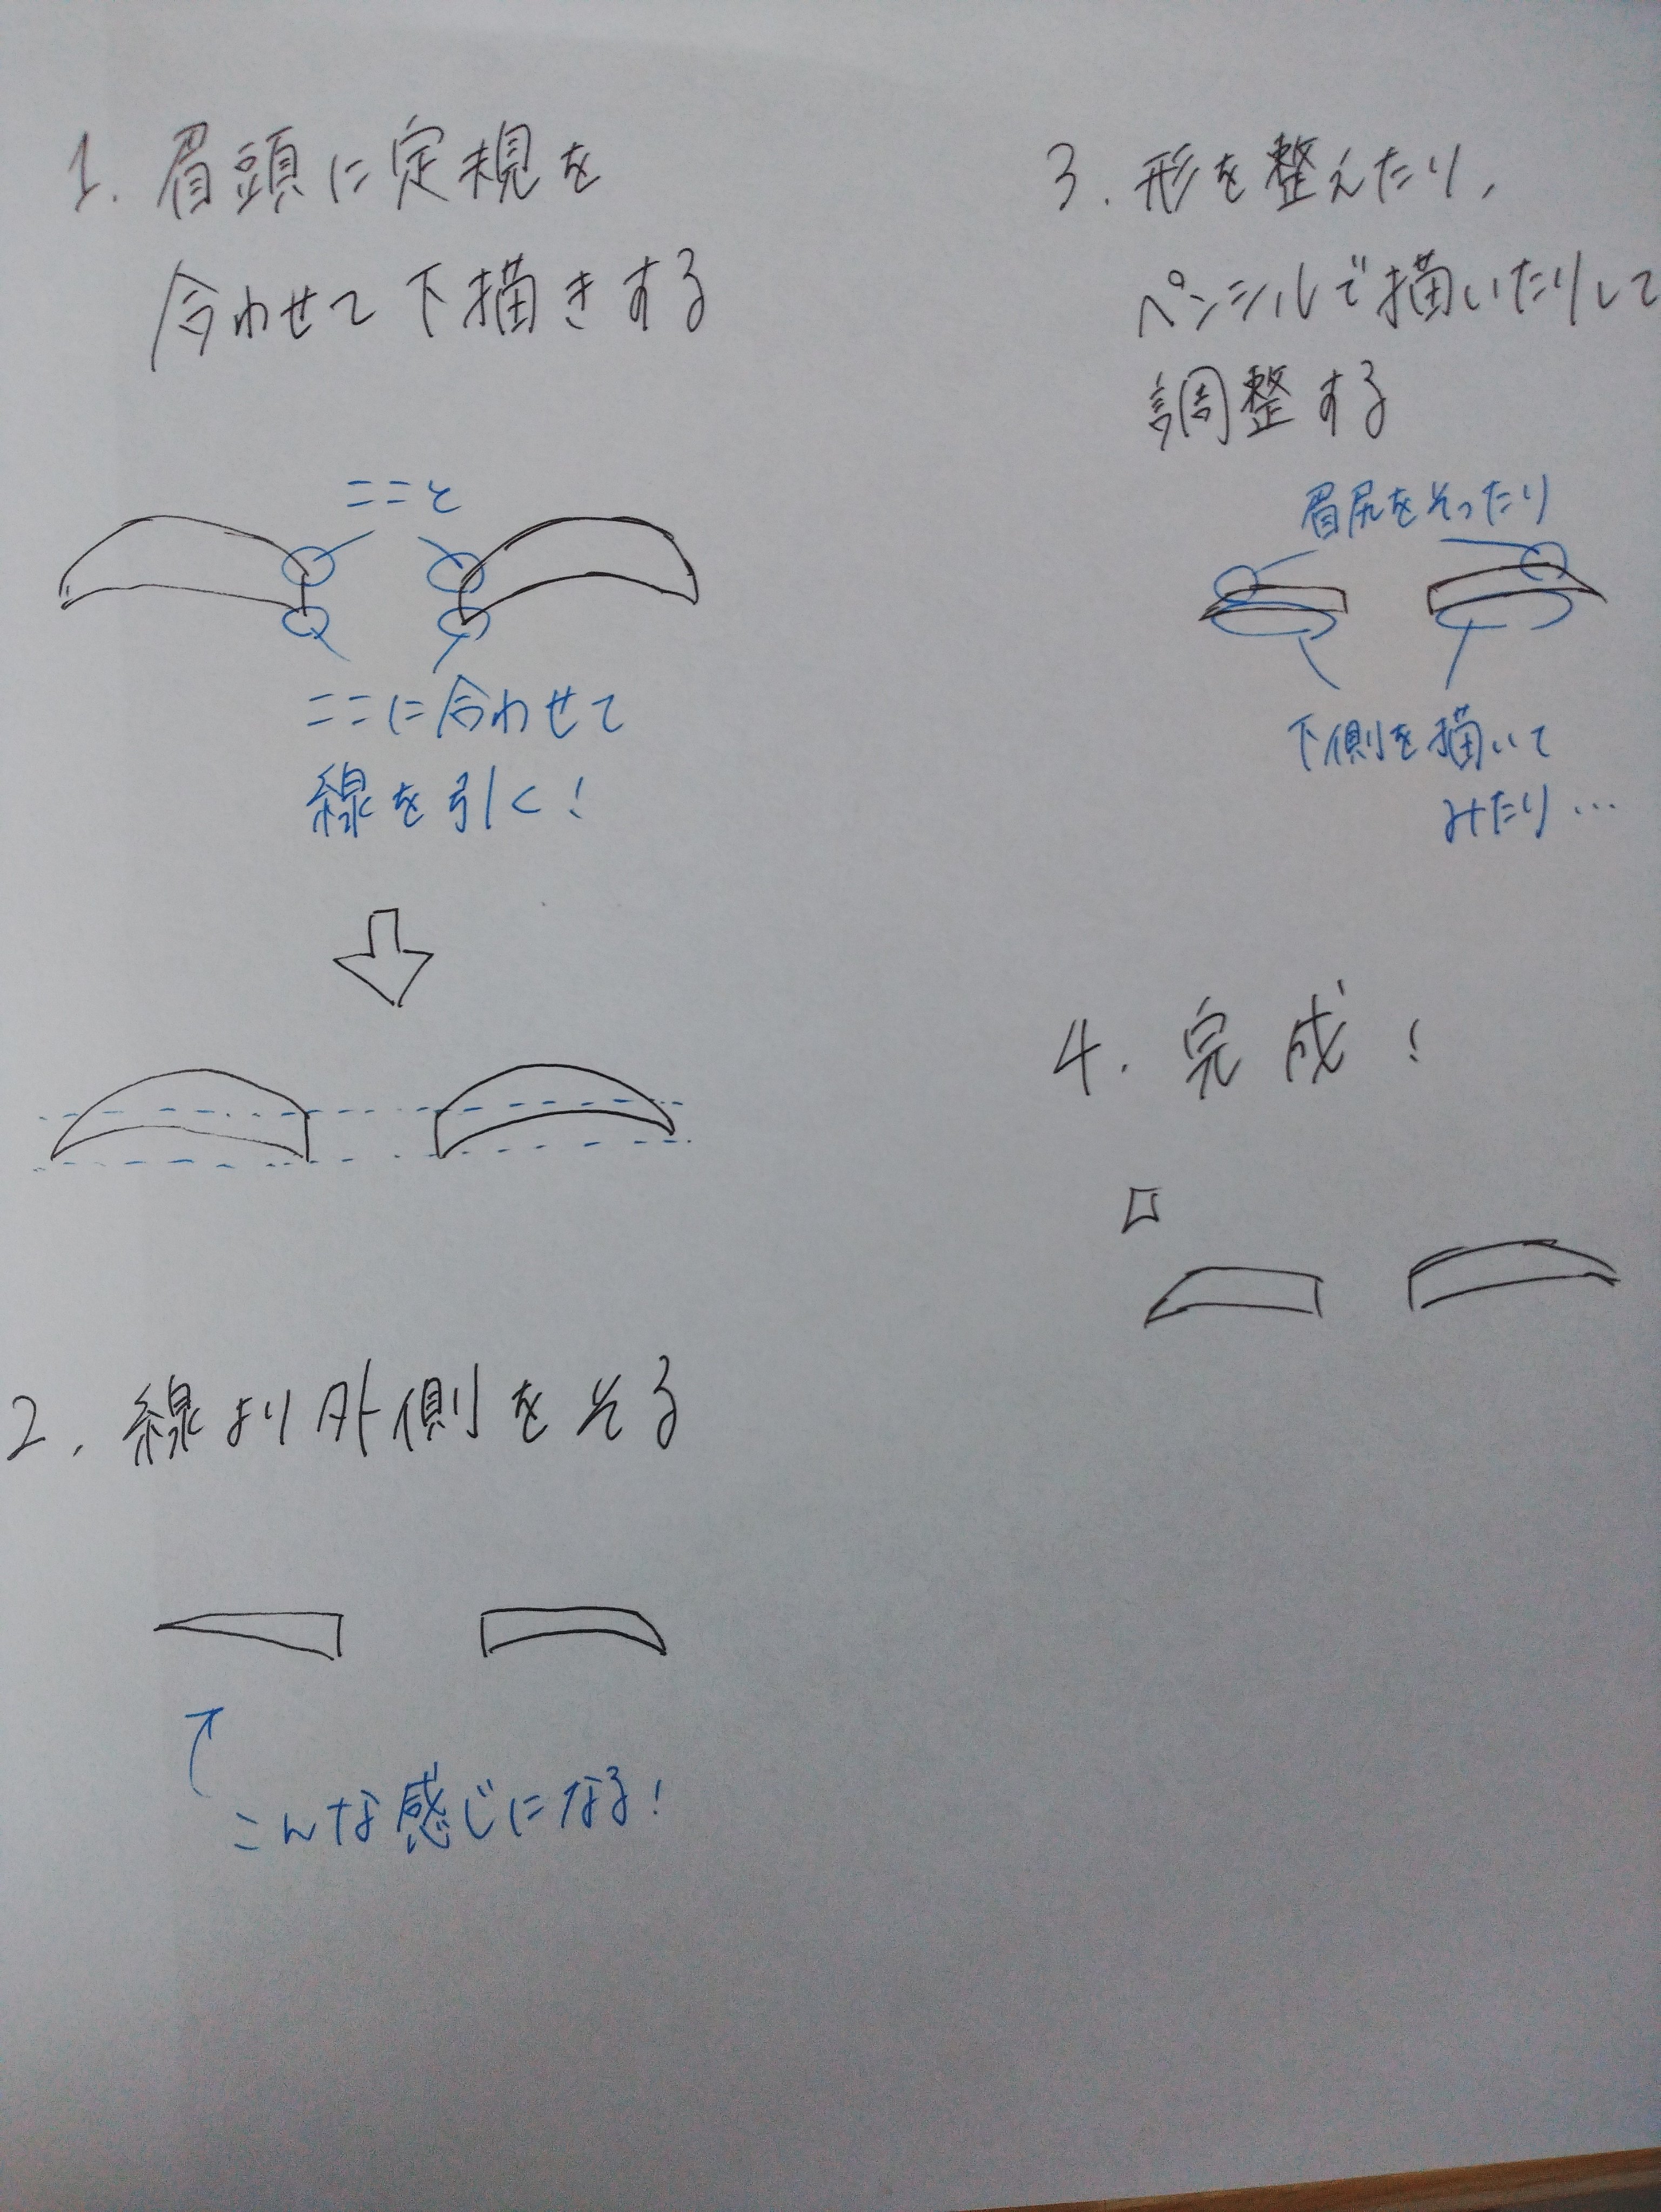 1. 眉頭に定規を
合わせて下描きする
ここと
ここに合わせて
線を引く!
2. 線より外側をそる
こんな感じになる!
3. 形を整えたり、
ペンシルで描いたりして
調整する
眉尻をそったり
下側を描いて
みたり…
4. 完成!